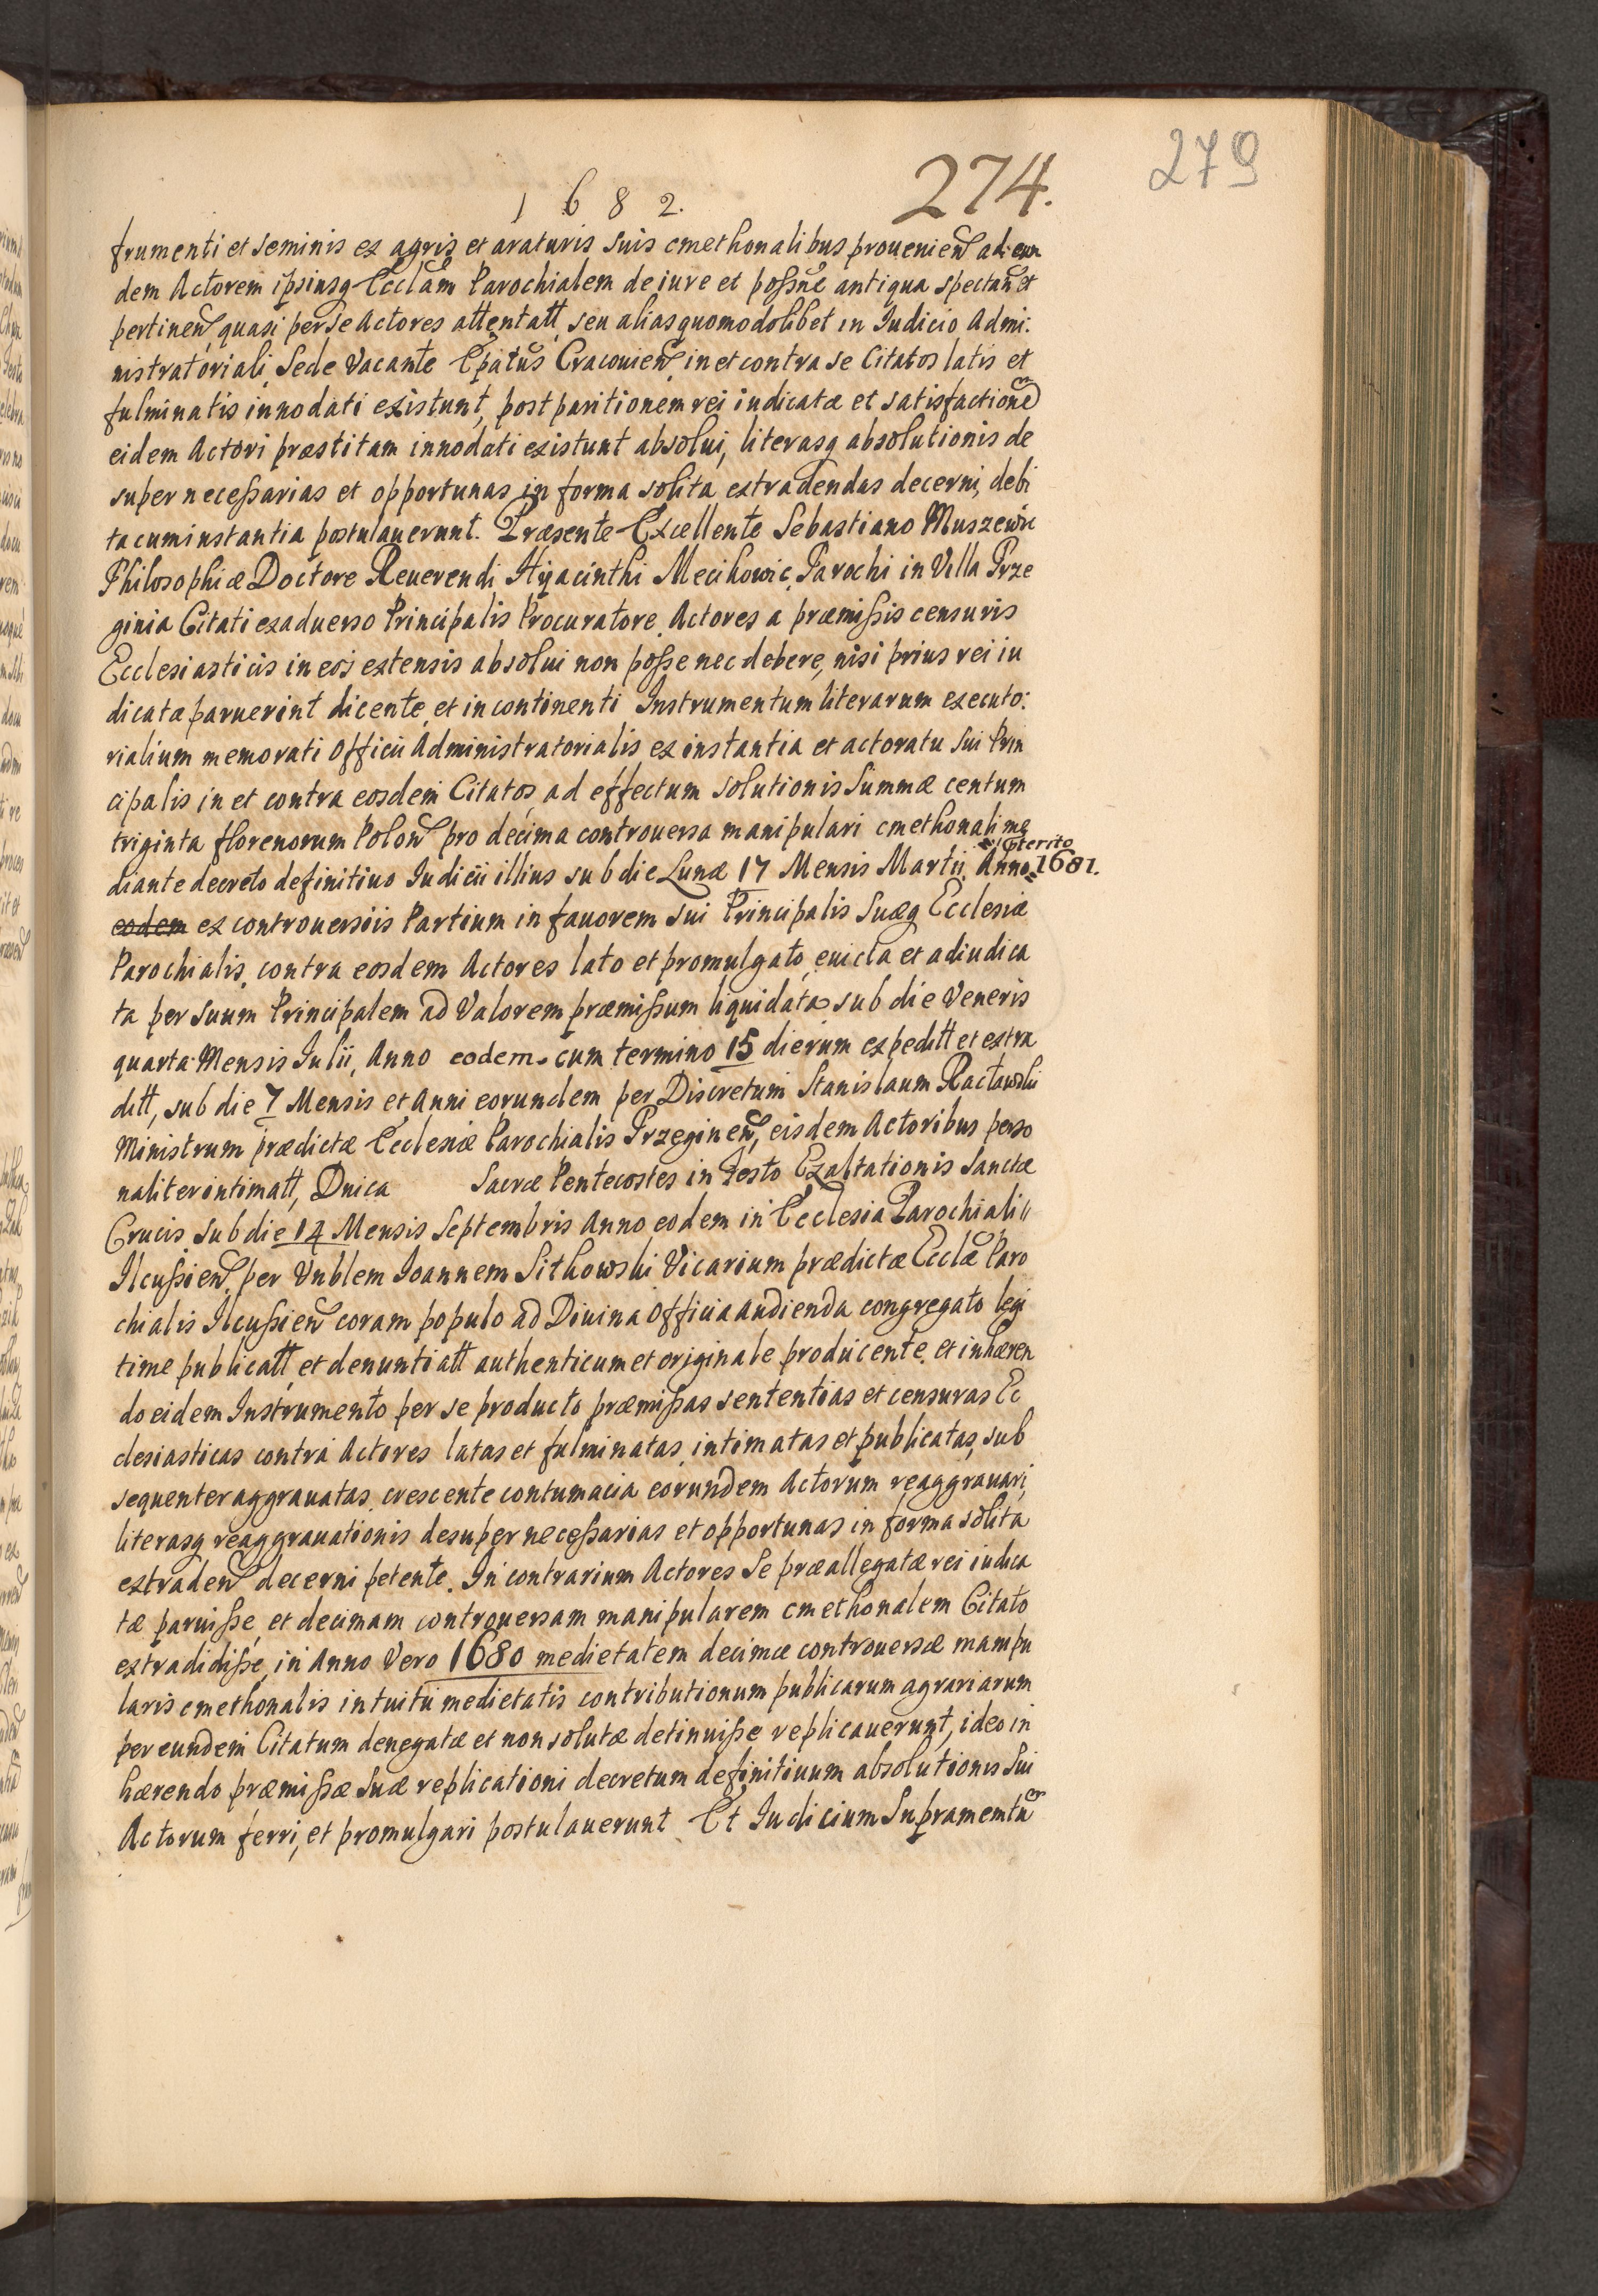 279
274.
1682.
frumenti et seminis ex agris et araturis suis cmethonalibus prouenien̄ ad eun
dem Actorem ipsiusq̨ Eccl̄am Parochialem de iure et possn̄e antiqua spectan̄ et
pertinen̄, quasi per se Actores attentatt, seu alias quomodolibet in Iudicio Admi:
nistratoriali, Sede Vacante Ep̄atus Cracouien̄, in et contra se Citatos latis et
fulminatis innodati existunt, post paritionem rei iudicatæ et satisfactionē
eidem Actori præstitam innodati existunt absolui, literasq̨ absolutionis de
super necessarias et opportunas in forma solita extradendas decerni, debi
ta cum instantia postulauerunt. Præsente Excellente Sebastiano Muszewic
Philosophiæ Doctore Reuerendi Hyacinthi Mecikowic, Parochi in Villa Prze
ginia Citati exaduerso Principalis Procuratore. Actores a præmissis censuris
Ecclesiasticis in eos extensis absolui non posse nec debere, nisi prius rei iu
dicatæ paruerint dicente, et incontinenti Instrumentum literarum executo:
rialium memorati Officii Administratorialis ex instantia et actoratu sui Prin
cipalis in et contra eosdem Citatos, ad effectum solutionis Summæ centum
triginta florenorum Polon̄ pro decima controuersa manipulari cmethonali me
diante decreto definitiuo Iudicii illius sub die Lunæ 17 Mensis Martii Anno præterito 1681.
eodem ex controuersiis Partium in fauorem sui Principalis Suæq̨ Ecclesiæ
Parochialis, contra eosdem Actores lato et promulgato, euicta et adiudica
ta per suum Principalem ad Valorem præmissum liquidata sub die Veneris
quarta Mensis Iulii, Anno eodem cum termino 15 dierum expeditt et extra
ditt, sub die 7 Mensis et Anni eorundem per Discretum Stanislaum Racławski
Ministrum prædictæ Ecclesiæ Parochialis Przeginen̄, eisdem Actoribus perso
naliter intimatt, Dnica Sacræ Pentecostes in Festo Exaltationis Sanctæ
Crucis sub die 14 Mensis Septembris Anno eodem in Ecclesia Parochiali
Ilcussien̄, per Vnblem Ioannem Sitkowski Vicarium prædictæ Eccl̄æ Paro
chialis Ilcussien̄ coram populo ad Diuina Officia audienda congregato legi
time publicatt, et denuntiatt authenticum et originale producente, et inhæren
do eidem Instrumento per se producto præmissas sententias et censuras Ec
clesiasticas contra Actores latas et fulminatas, intimatas et publicatas, sub
sequenter aggrauatas, crescente contumacia eorundem Actorum reaggrauari,
literasq̨ reaggrauationis desuper necessarias et opportunas in forma solita
extraden̄ decerni petente. In contrarium Actores se præallegatæ rei iudica
tæ paruisse, et decimam controuersam manipularem cmethonalem Citato
extradidisse, in Anno Vero 1680 medietatem decimæ controuersæ manipu
laris cmethonalis intuitu medietatis contributionum publicarum agrariarum
per eundem Citatum denegatæ et non solutæ detinuisse replicauerunt, ideo in
hærendo præmissæ suæ replicationi decretum definitiuum absolutionis sui
Actorum ferri, et promulgari postulauerunt. Et Iudicium Supramemtū